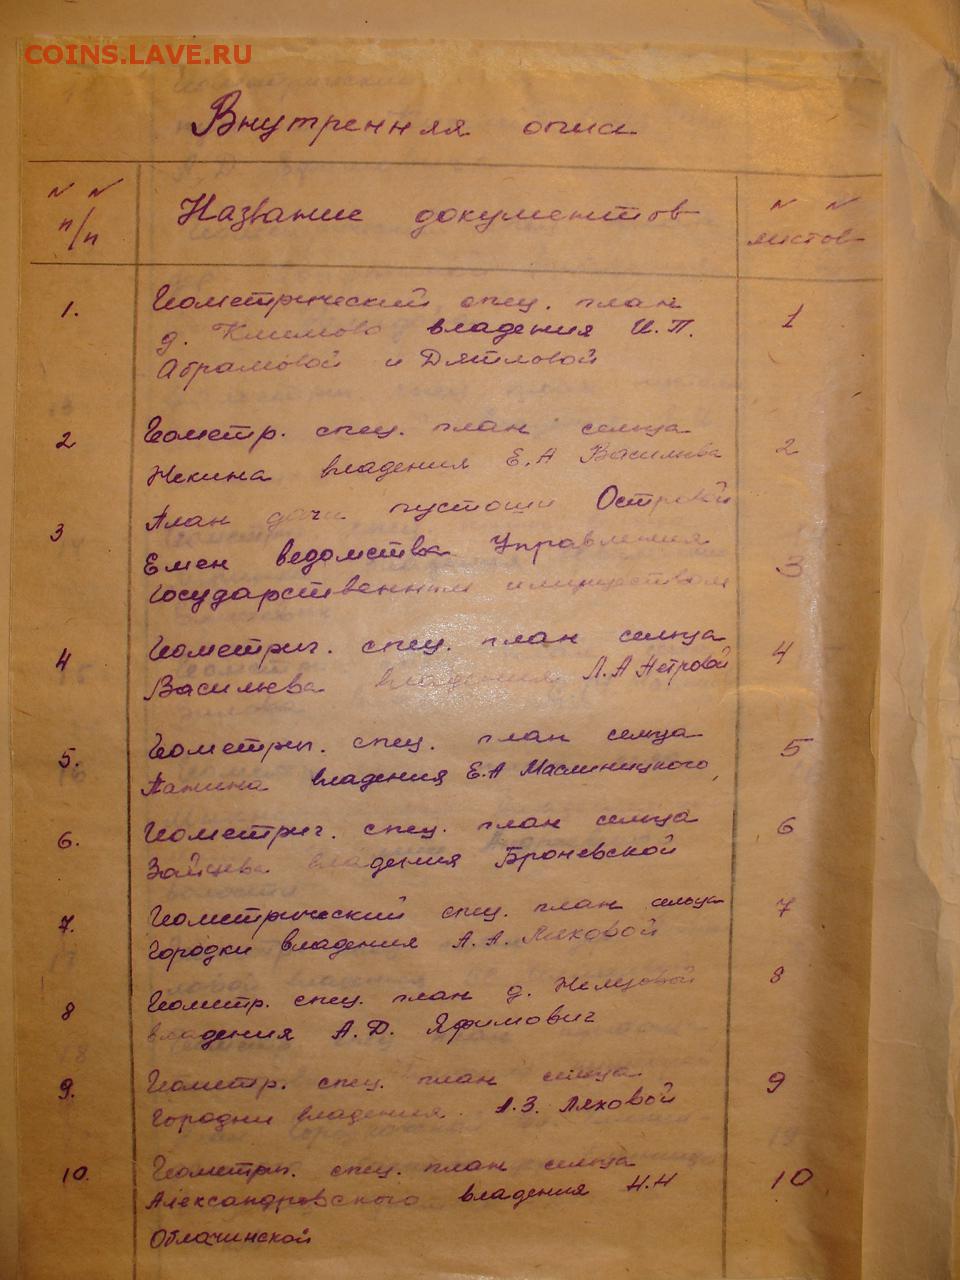 COINS.LAVE.RU
Внутренняя опись
N N
п/п
Название документов
N N
листов
1.
Геометрический спец. план
д. Климово владения И.П.
Абрамовой и Дятловой
1
2
Геометр. спец. план сельца
Некина владения Е.А Васильева
2
3
План дачи пустоши Островой
Емен ведомства Управления
Государственным имуществом
3
4
Геометрич. спец. план сельца
Васильева владения Л.А Петровой
4
5.
Геометрич. спец. план сельца
Панина владения Е.А Маслиницкого
5
6.
Геометрич. спец. план сельца
Зайцева владения Броневской
6
7.
Геометрический спец. план сельца
Городки владения А.А. Ляховой
7
8
Геометр. спец. план д. Немцовой
владения А.Д. Яфимович
8
9.
Геометр. спец. план сельца
Городни владения Л.З. Ляховой
9
10.
Геометрич. спец. план сельца
Александровского владения Н.Н
Облачинской
10